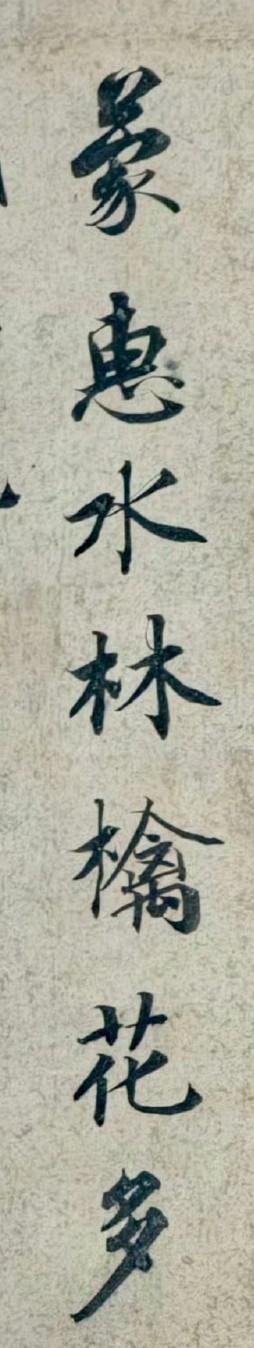 蒙惠水林檎花多